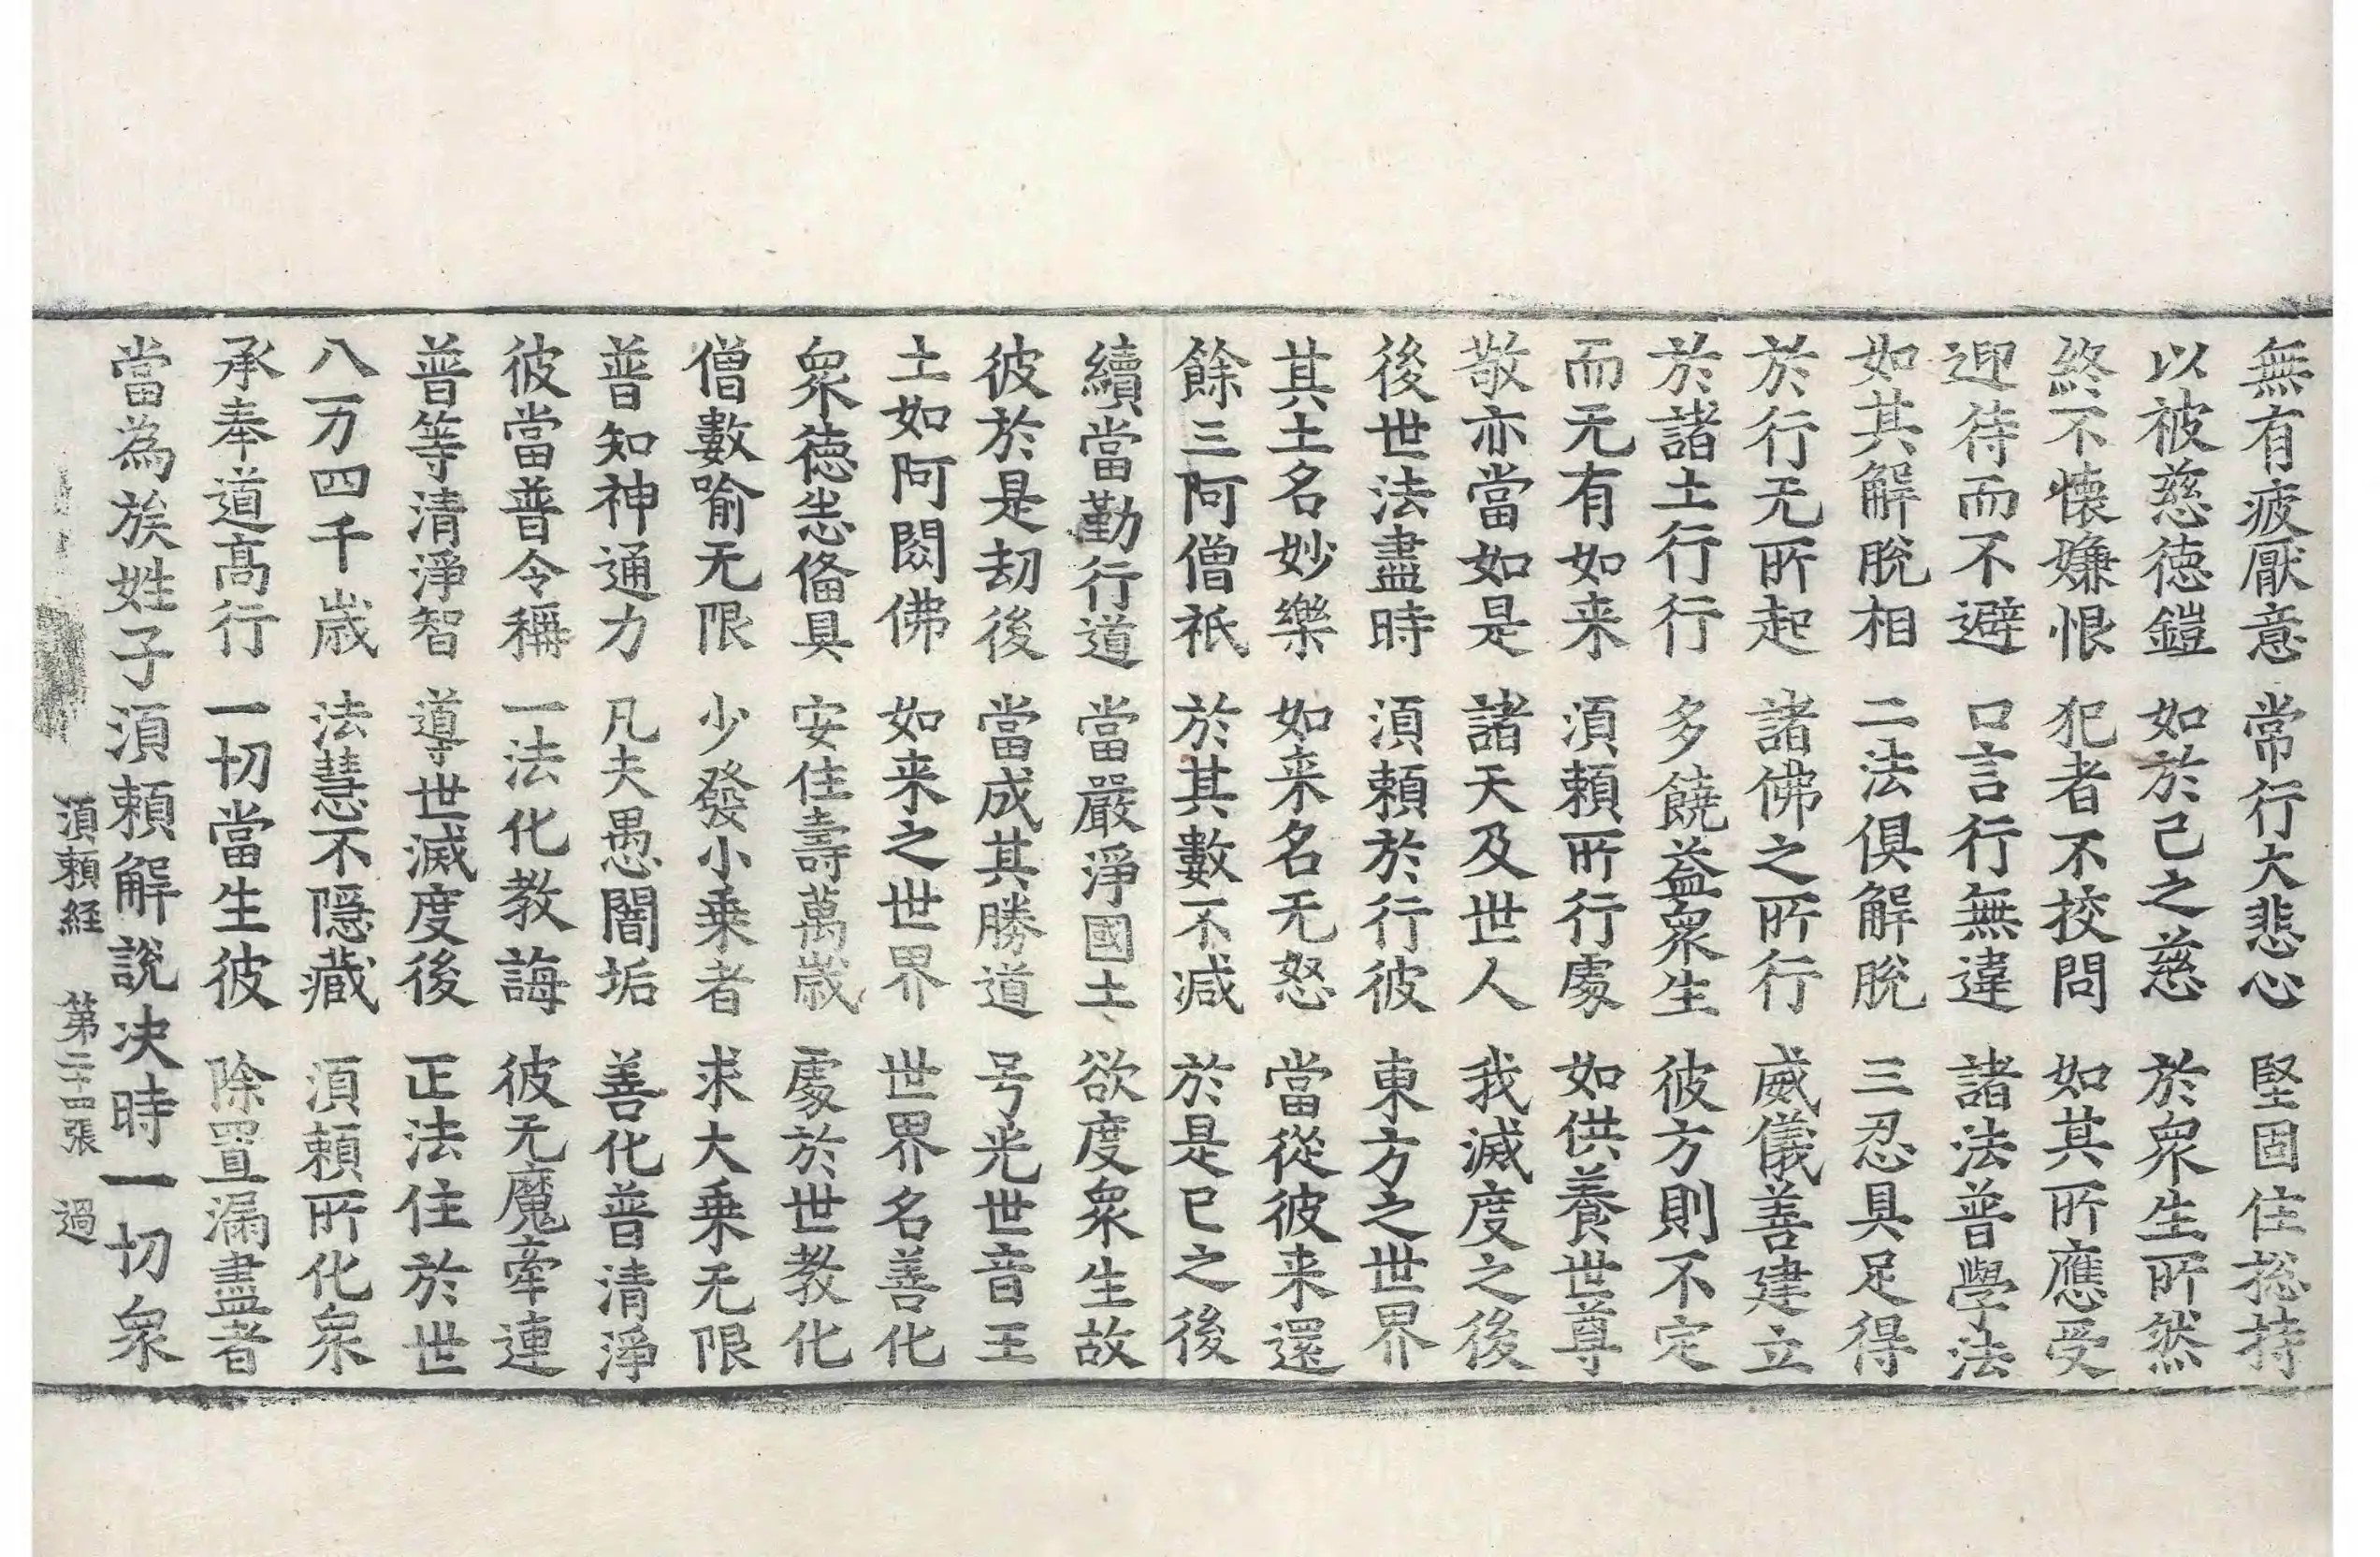 無有疲厭意　常行大悲心　堅固住捴持
以被慈徳鎧　如於己之慈　於衆生所然
終不懐嫌恨　犯者不挍問　如其所應受
迎待而不避　口言行無違　諸法普學法
如其解脫相　二法俱解脫　三忍具足得
於行无所起　諸佛之所行　威儀善建立
於諸土行行　多饒益衆生　彼方則不定
而无有如来　湏頼所行處　如供養世尊
敬亦當如是　諸天及世人　我滅度之後
後世法盡時　湏頼於行彼　東方之世界
其土名妙樂　如来名无怒　當從彼来還
餘三阿僧祇　於其數不減　於是已之後
續當勤行道　當嚴淨國土　欲度衆生故
彼於是劫後　當成其勝道　号光世音王
土如阿閦佛　如来之世界　世界名善化
衆徳悉俻具　安住壽萬歳　處於世教化
僧數喻无限　少發小乗者　求大乗无限
普知神通力　凡夫愚闇垢　善化普清淨
彼當普令稱　一法化教誨　彼无魔牽連
普等清淨智　導世滅度後　正法住於世
八万四千歳　法慧不隠藏　湏頼所化衆
承奉道髙行　一切當生彼　除置漏盡者
當為族姓子湏頼解説决時一切衆
湏頼経　第二十四張　過